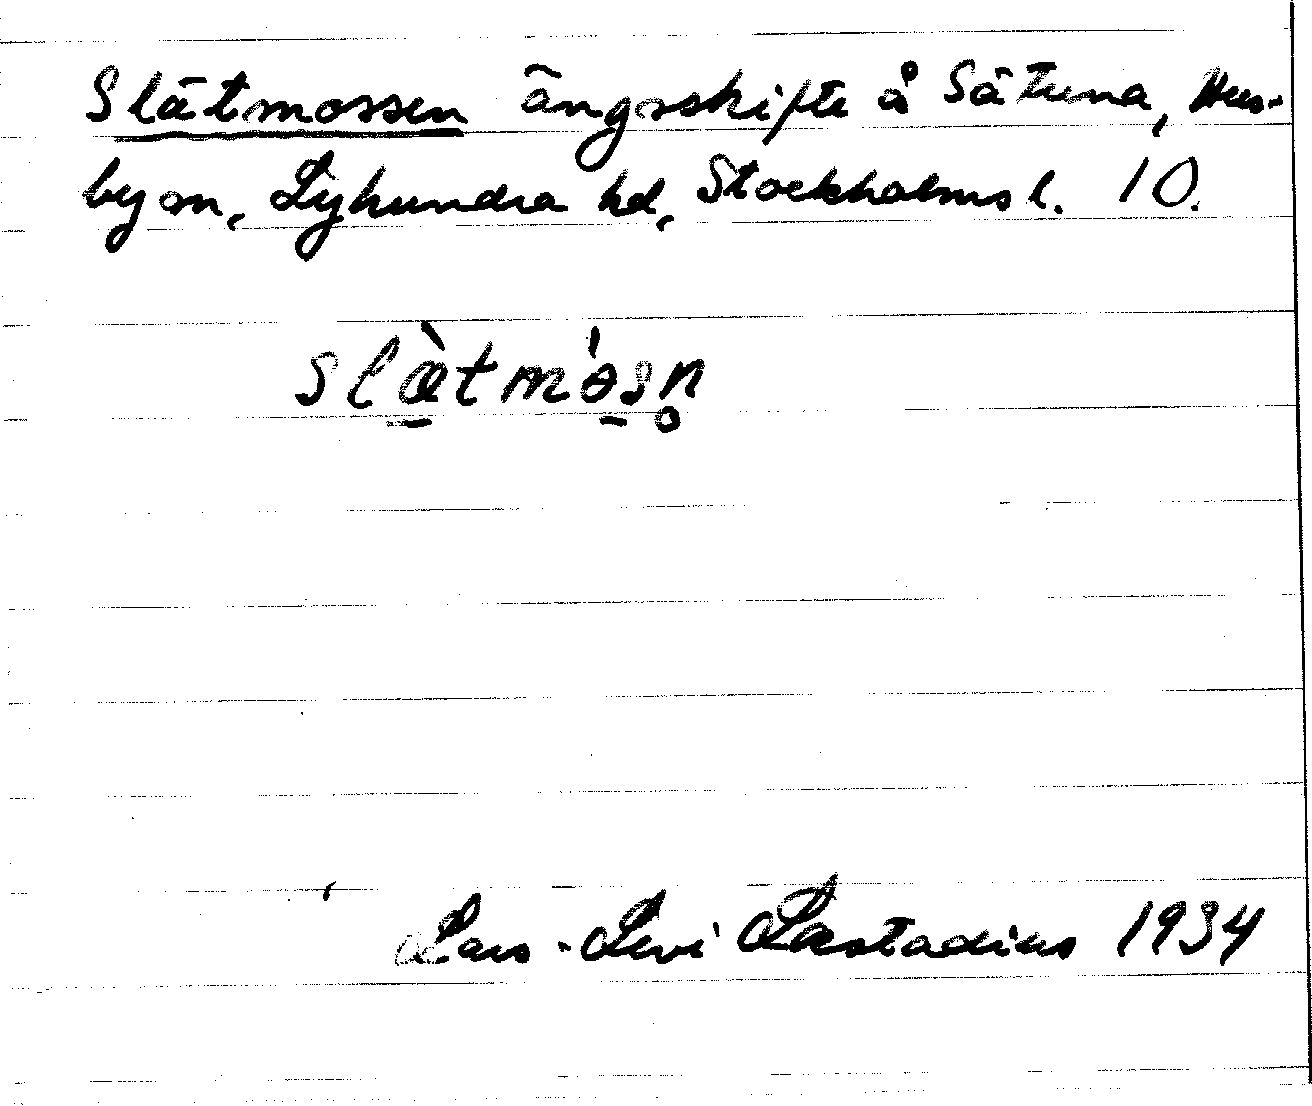 Slätmossen ängsskifte å Sätuna, Hus-
by sn, Lyhundra hd, Stockholms l. 10.
slæ̠̀tmɵ̠́sn̥
Lars-Levi Læstadius 1934